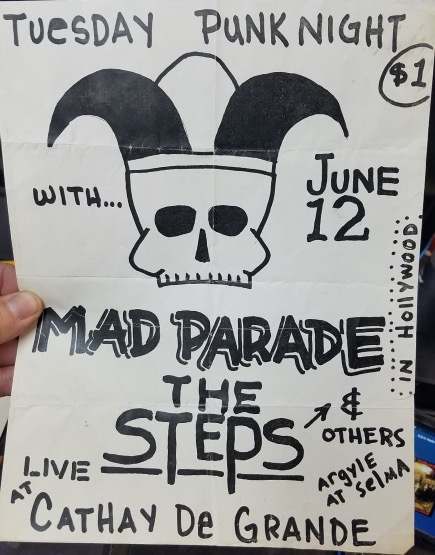 TUESDAY PUNK NIGHT
$1
WITH...
JUNE
12
IN HOLLYWOOD
MAD PARADE
THE
STEPS
& OTHERS
LIVE
AT
ARGYLE
AT SELMA
CATHAY De GRANDE